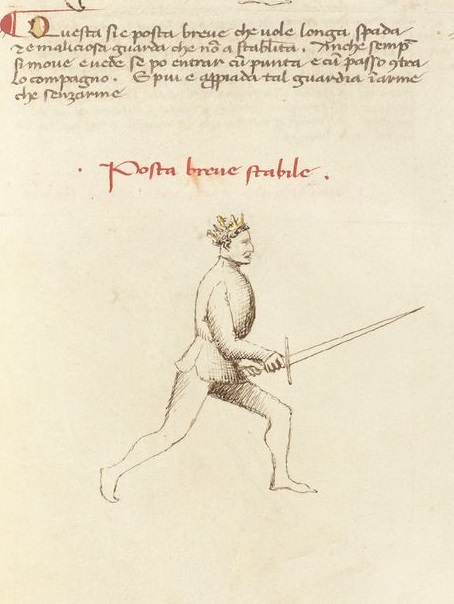 Questa si e posta breve che vole longa spada
⁊ e maliciosa guarda che nō a stabilita. Anche semp̄
si move e vede se po entrar cū punta e cū passo ꝯtra
lo compagno. E piu e appiada tal guardia ī arme
che senzarme
Posta breve stabile.